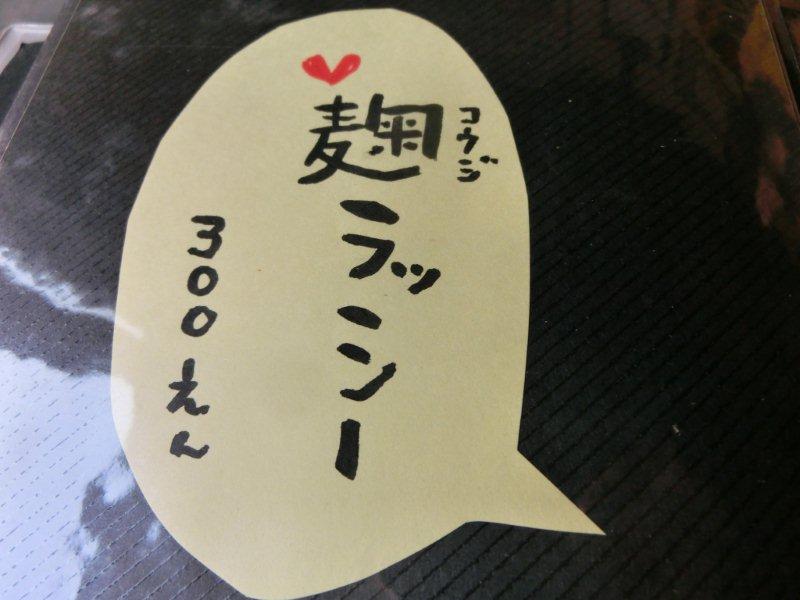 麹ラッシー
コウジ
300えん